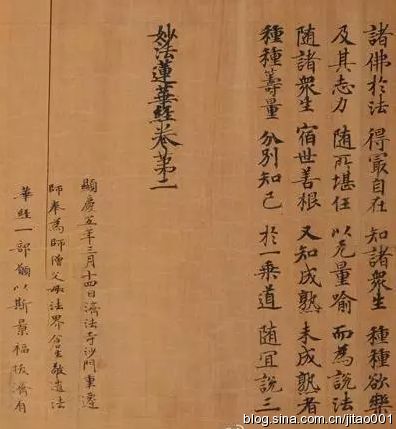 諸佛於法 得冣自在 知諸衆生 種種欲樂
及其志力 随所堪任 以无量喻 而為說法
随諸衆生 宿世善根 又知成熟 未成熟者
種種籌量 分别知已 於一乗道 随宜說三
妙法蓮華経卷第二
顯慶五年三月十四日濟法寺沙門重遷
師奉為師僧父母法界含生敬造法
華経一部願以斯景福拔濟有
blog.sina.com.cn/jitao001